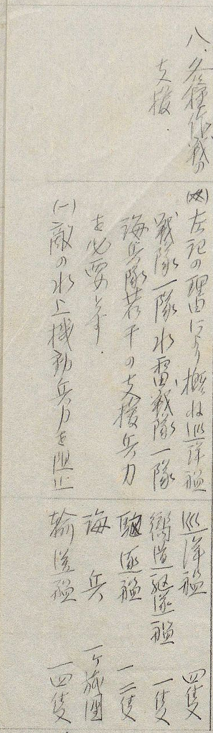 八、各種作戦の
支援.
(改)左記の理由により概ね巡洋艦
戦隊一隊水雷戦隊一隊
海兵隊若干の支援兵力
を必要とす.
(一)敵の水上機動兵力を阻止
巡洋艦 四隻
嚮導駆逐艦 一隻
駆逐艦 一二隻
海兵 一ケ旅團
輸送艦 一四隻